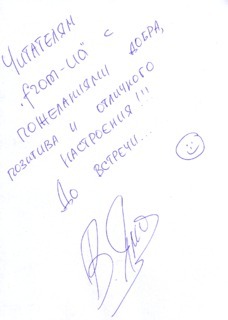 Читателям
.from-ua с
пожеланиями добра,
позитива и отличного
настроения!!!
До встречи...